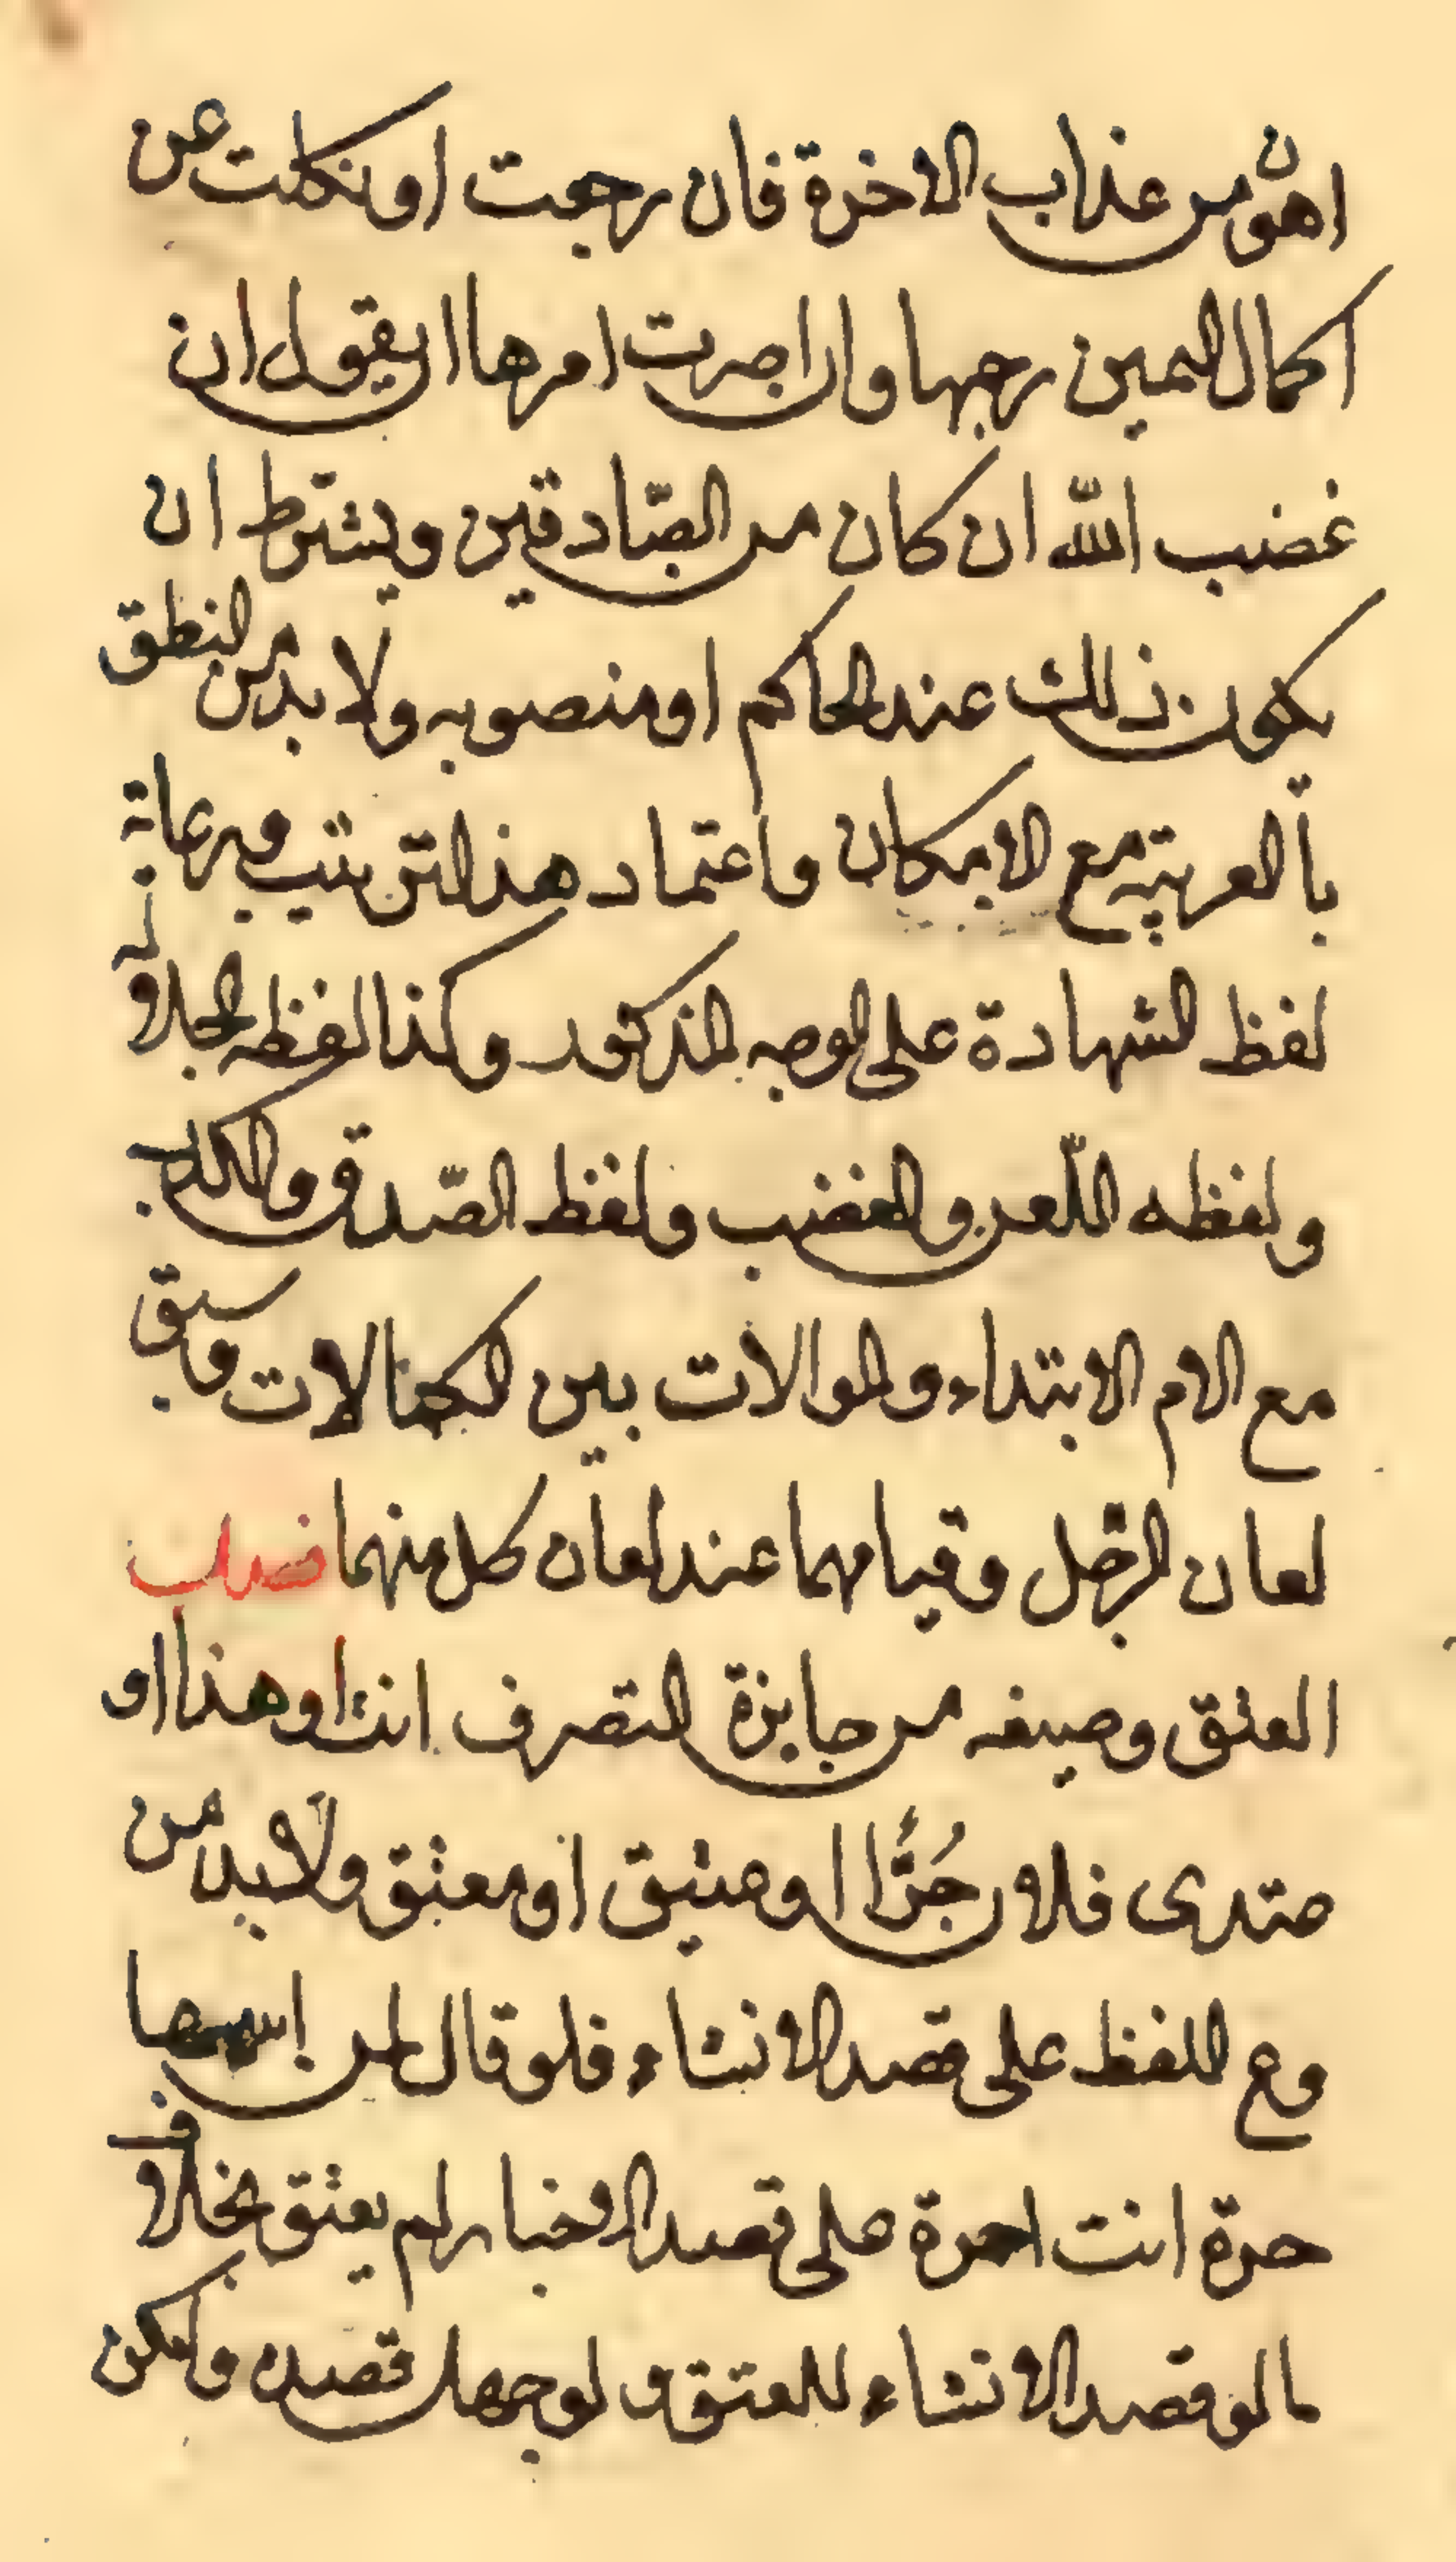 اهون من عذاب الاخرة فان رجعت او نكلت عن
اكمال اليمين رجها وان اصرت امرها ان يقول ان
غضب الله ان كان من الصّادقين ويشترط ان
يكون ذلك عند الحاكم او منصوبه ولا بد من النطق
بالعربيّة مع الامكان واعتماد هذا الترتيب ومرعاة
لفظ الشهادة على الوجه المذكور وكذا لفظه الجلالة
ولفظه اللّعن والغضب ولفظ الصّدق والكذب
مع الام الابتداء والموالات بين الكمالات وسبق
لعان الرّجل وقيامهما عند لعان كل منهما
العتق وصيغه من جايزة التصرف انت او هذا او
فلان حرّا او عتيق او معتق ولا بد من
اللفظ على قصد الانشاء فلو قال لمن اسمها
حرة انت احرة على قصد الاخبار لم يعتق بخلاف
ما لو قصد الانشاء للعتق ولو جهل قصده ولكن